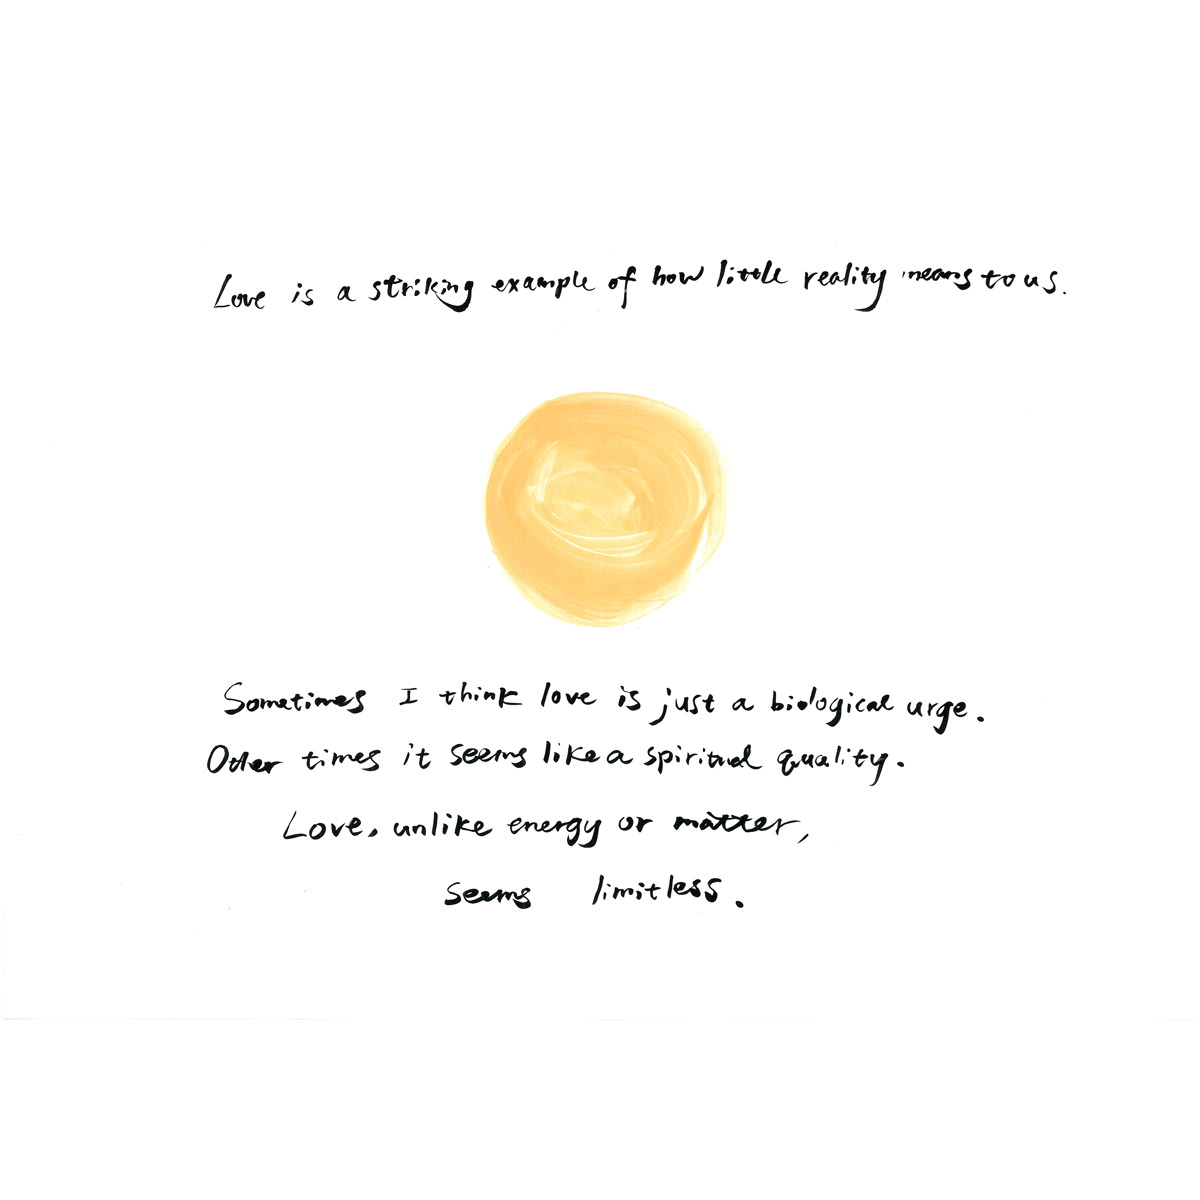 Love is a striking example of how little reality means to us.
Sometimes I think love is just a biological urge.
Other times it seems like a spiritual quality.
Love, unlike energy or matter,
seems limitless.